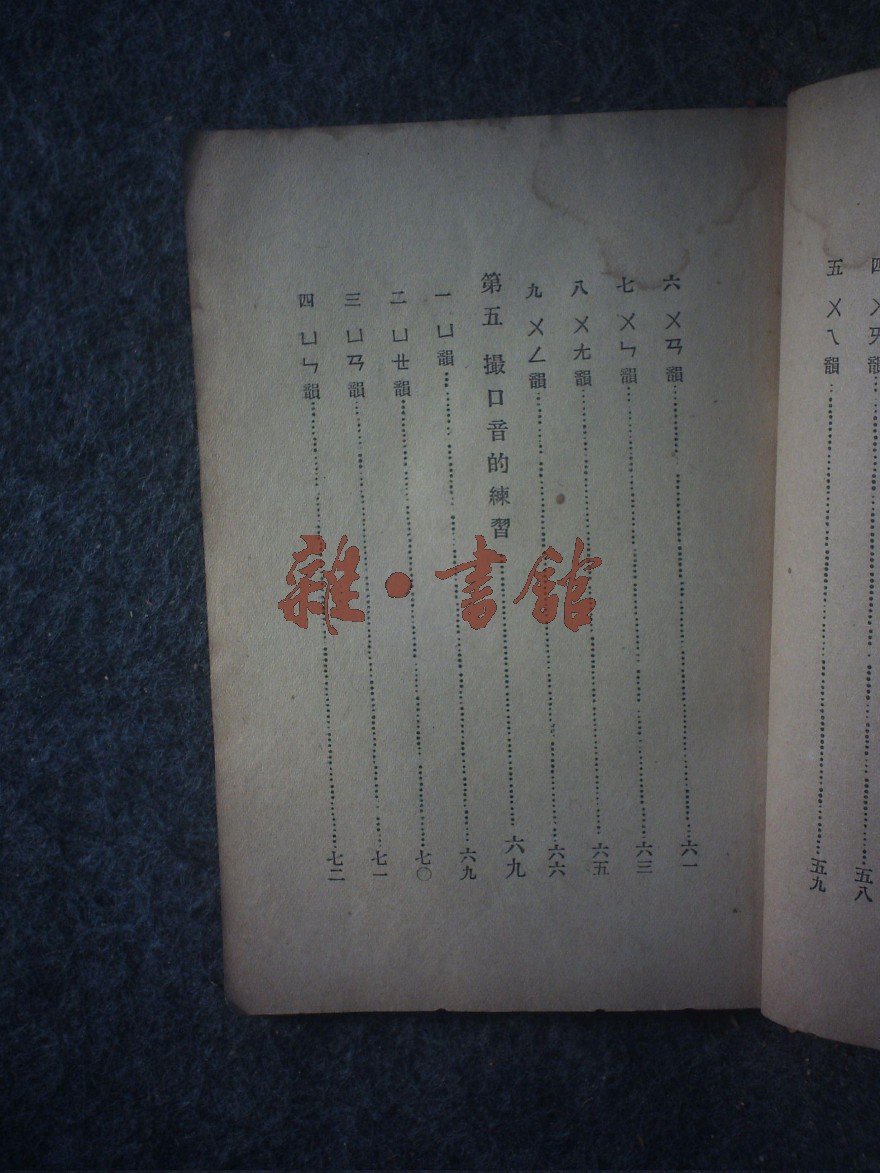 四 ㄨㄞ韻……五八
五 ㄨㄟ韻……五九
六 ㄨㄢ韻……六一
七 ㄨㄣ韻……六三
八 ㄨㄤ韻……六五
九 ㄨㄥ韻……六六
第五 撮口音的練習……六九
一 ㄩ韻……六九
二 ㄩㄝ韻……七〇
三 ㄩㄢ韻……七一
四 ㄩㄣ韻……七二
雜·書館